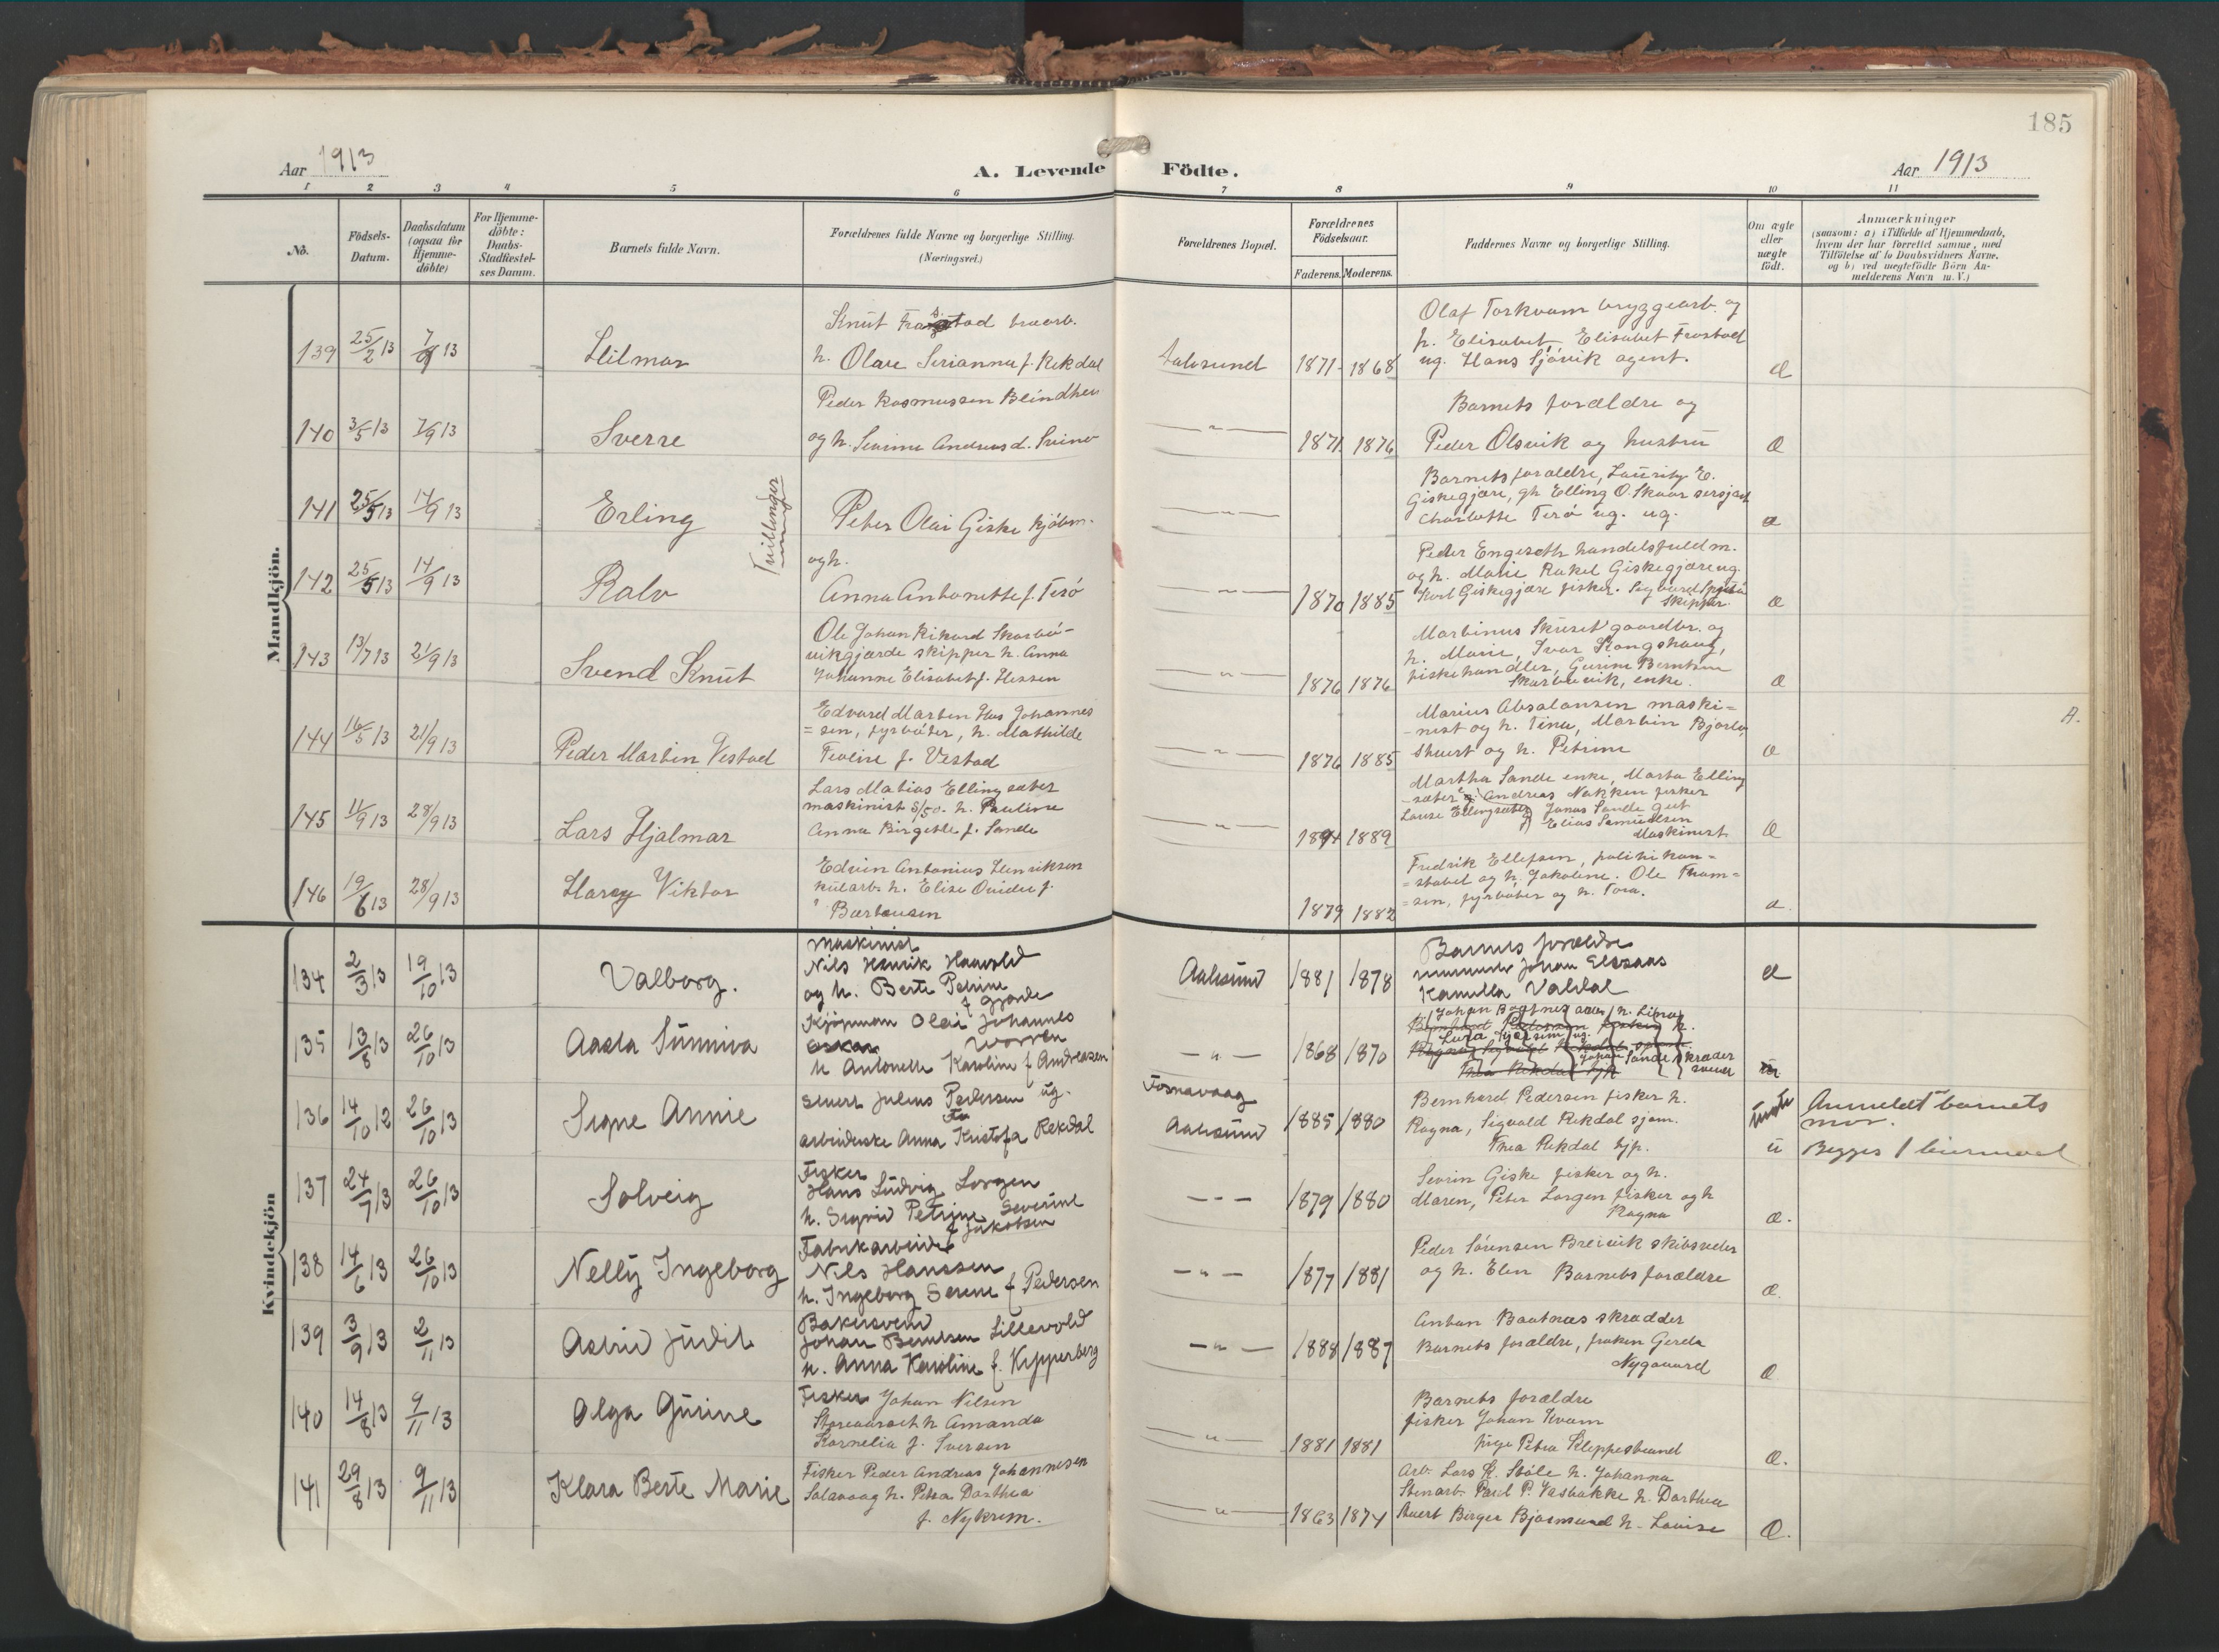 185
Aar 1913
A. Levende
Födte.
Aar 1913
1 2 3 4 5 6 7 8 9 10 11
No.
Födsels-
Datum.
Daabsdatum
(ogsaa for
Hjemme-
döbte)
For Hjemme-
döbte:
Daabs-
Stadfæstel-
ses Datum.
Barnets fulde Navn.
Forældrenes fulde Navne og borgerlige Stilling.
(Næringsvei.)
Forældrenes Bopæl.
Forældrenes
Födselsaar.
Faderens. Moderens.
Faddernes Navne og borgerlige Stilling.
Om ægte
eller
uægte
födt.
Anmærkninger
(saasom: a) i Tilfælde af Hjemmedaab,
hvem der har forrettet samme, med
Tilföielse af to Daabsvidners Navne.
og b) ved uægtefödte Börn An-
melderens Navn m.V.)
Mandkjön.
139 25/2 13 7/9 13
Hilmar
Knut
h. Olave Serianna f. Rekdal
Aalesund
1871 1868
Olaf Torkvam bryggearb. og
h. Elisabet, Elisabet Frostad
ug. Hans Sjåvik agent.
æ
140 3/5 13 7/9 13
Sverre
Peder Rasmussen Blindhei
og h. Severine Andreasd. Svino
—"—
1871 1876
Barnets forældre og
Peder Olsvik og hustru
æ
141 25/5 13 14/9 13
Erling
Tvillinger
Peter Olai Giske kjöbm.
—"—
Barnets forældre, Lauritz E.
Giskegjære, gh Elling O. Skaar
Charlotte Terö ug. ug.
æ
142 25/5 13 14/9 13
Ralv
og h.
Anna Antonette f. Terö
—"—
1870 1885
Peder Engeseth handelsfuldm.
og h. Marie Rakel Giskegjære ug.
Karl Giskegjære fisker.
skipper.
æ
143 13/7 13 21/9 13
Svend Knut
Ole Johan Rikard Skarbö-
vikgjærde skipper h. Anna
Johanne Elisabet f. Hessen
—"—
1876 1876
Martinus Skuset gaardbr. og
h. Marie, Ivar Kongshaug,
fiskehandler, Gurine Berntsen
Skarbövik, enke.
æ
144 16/5 13 21/9 13
Peder Martin Vestad
Edvard Marten Johannes
=sen, fyrböter, h. Mathilde
f. Vestad
—"—
1876 1885
Marius Absalonsen maski=
-nist og h. Tina, Martin
og h. Petrine
æ
A.
145 11/9 13 28/9 13
Lars Hjalmar
Lars Matias Ellingsæter
maskinist h. Pauline
Anna Birgitte f. Sande
—"—
1884 1889
Martha Sande enke, Marta Elling
-sæter Andreas Nakken fisker
Ellingsæter Jonas Sande gut
Elias Samuelsen
Maskinist
æ
146 19/6 13 28/9 13
Harry Viktor
Edvin Antonius Henriksen
kularb. h. Elise Ovidia f.
Bærtausen
1879 1882
Fredrik Ellefsen, politikon-
=stabel og h. Jakoline. Ole Thom=
=sen, fyrböter og h. Tora.
æ
Kvindekjön
134 2/3 13 19/10 13
Valborg.
Maskinist
Nils Henrik Haavold
og h. Berte Petrine
f Gjærde
Aalesund
1881 1878
Barnets forældre
Johan Elsaas
Kamilla Valdal
æ
135 13/8 13 26/10 13
Aasta Sünniva
Kjöpmann Olai Johannes
Oskar Worren
h Antonette Karoline f Andreasen
—"—
1868 1870
Johan h. Lina
ug.
Johan Sande skræder
svend
136 14/10 12 26/10 13
Signe Annie
Julius Pedersen ug.
arbeiderske Anna Kristofa Rekdal
Fosnavaag
Aalesund
1885 1880
Bernhard Pedersen fisker h.
Ragna, Sigvald Rekdal sjöm.
Thea Rekdal hjp.
u
Anmeldt barnets
mor.
Begges 1 leiermaal
137 24/7 13 26/10 13
Solveig
Fisker
Hans Lüdvig Lorgen
h. Sigrid Petrine Severine
f Jakobsen
—"—
1879 1880
Severin Giske fisker og h.
Maren, Peter Lorgen fisker og h
Ragna
æ.
138 14/6 13 26/10 13
Nelly Ingeborg
Fabrikarbeider
Nils Hanssen
h. Ingeborg Serene f Pedersen
—"—
1877 1881
Peder Sörensen Breivik skibsreder
og h. Elen Barnets forældre
æ.
139 3/9 13 2/11 13
Astrid Jüdit
Bakersvend
Johan Berntsen Lillevold
h. Anna Karoline f. Kipperberg
—"—
1888 1887
Anton Baatnæs skrædder
Barnets forældre, fröken Gerda
Nygaard
æ
140 14/8 13 9/11 13
Olga Gürine
Fisker Johan Nilsen
h Amanda
Kornelia f. Iversen
—"—
1881 1881
Barnets forældre
fisker Johan Kvam
pige Petra Kleppestrand
æ.
141 29/8 13 9/11 13
Klara Berte Marie
Fisker Peder Andreas Johannesen
Solavaag h. Petra Dorthea
f. Nykrem.
—"—
1863 1874
Arb. Lars K. Ståle h. Johanna
Stenarb. Paul P. Vasbakke h. Dorthea
Berger Bjørnsund h. Louise
æ.